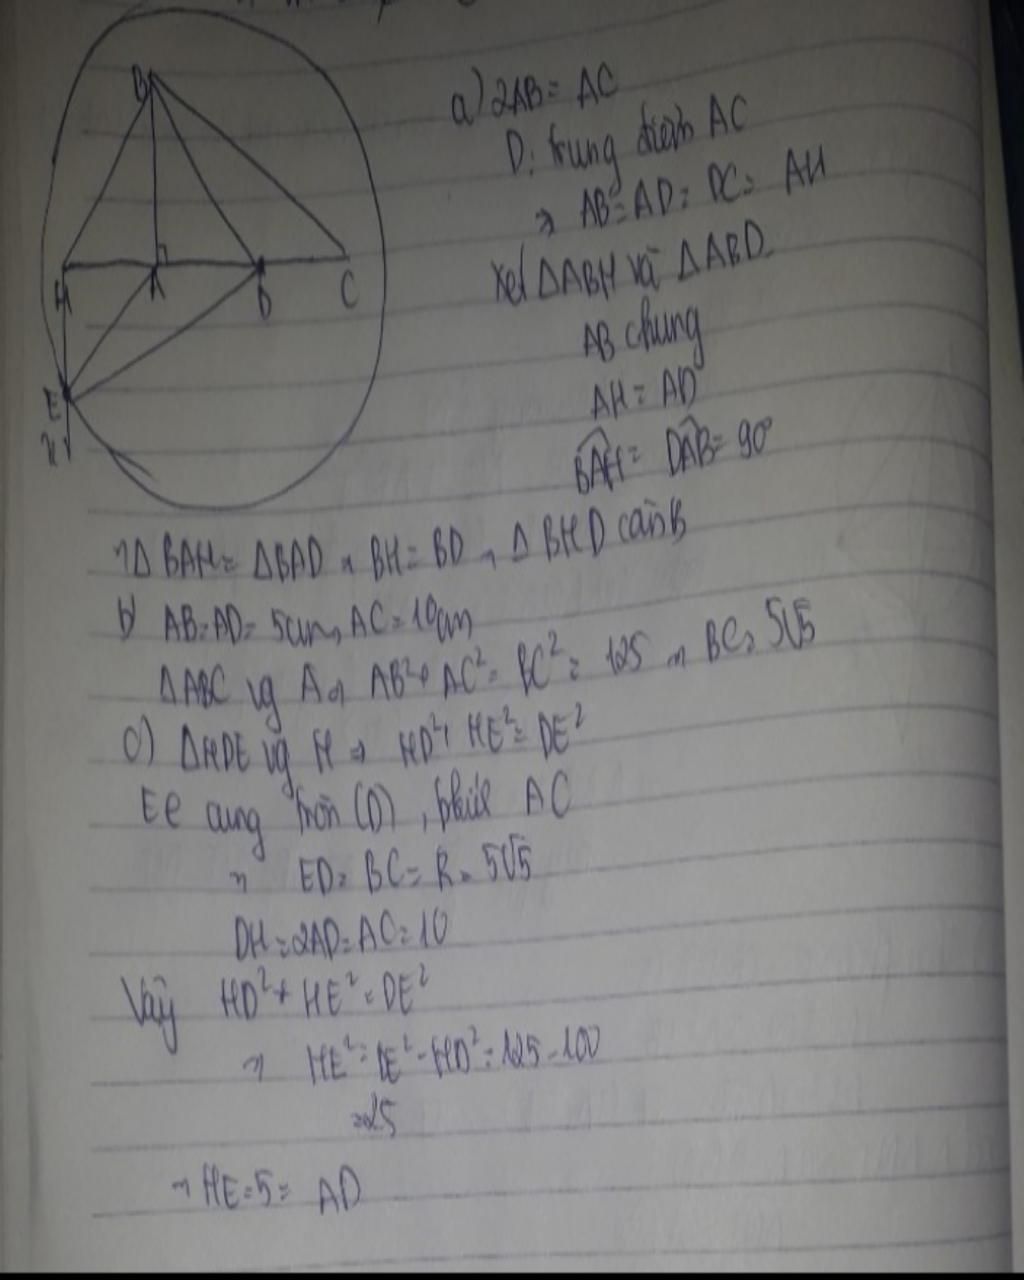 B
H
A
D
C
E
x
a) 2AB = AC
D: trung điểm AC
=> AB = AD = DC = AH
Xét ΔABH và ΔABD
AB chung
AH = AD
BAH = DAB = 90°
=> Δ BAH = ΔBAD => BH = BD => Δ BHD cân B
b) AB = AD = 5cm, AC = 10cm
ΔABC vg A => AB² + AC² = BC² = 125 => BC = 5√5
c) ΔHDE vg H => HD² + HE² = DE²
E∈ cung tròn (D), AC
=> ED = BC = R = 5√5
DH = 2AD = AC = 10
Vậy HD² + HE² = DE²
=> HE² = DE² - HD² = 125 - 100
= 25
=> HE = 5 = AD